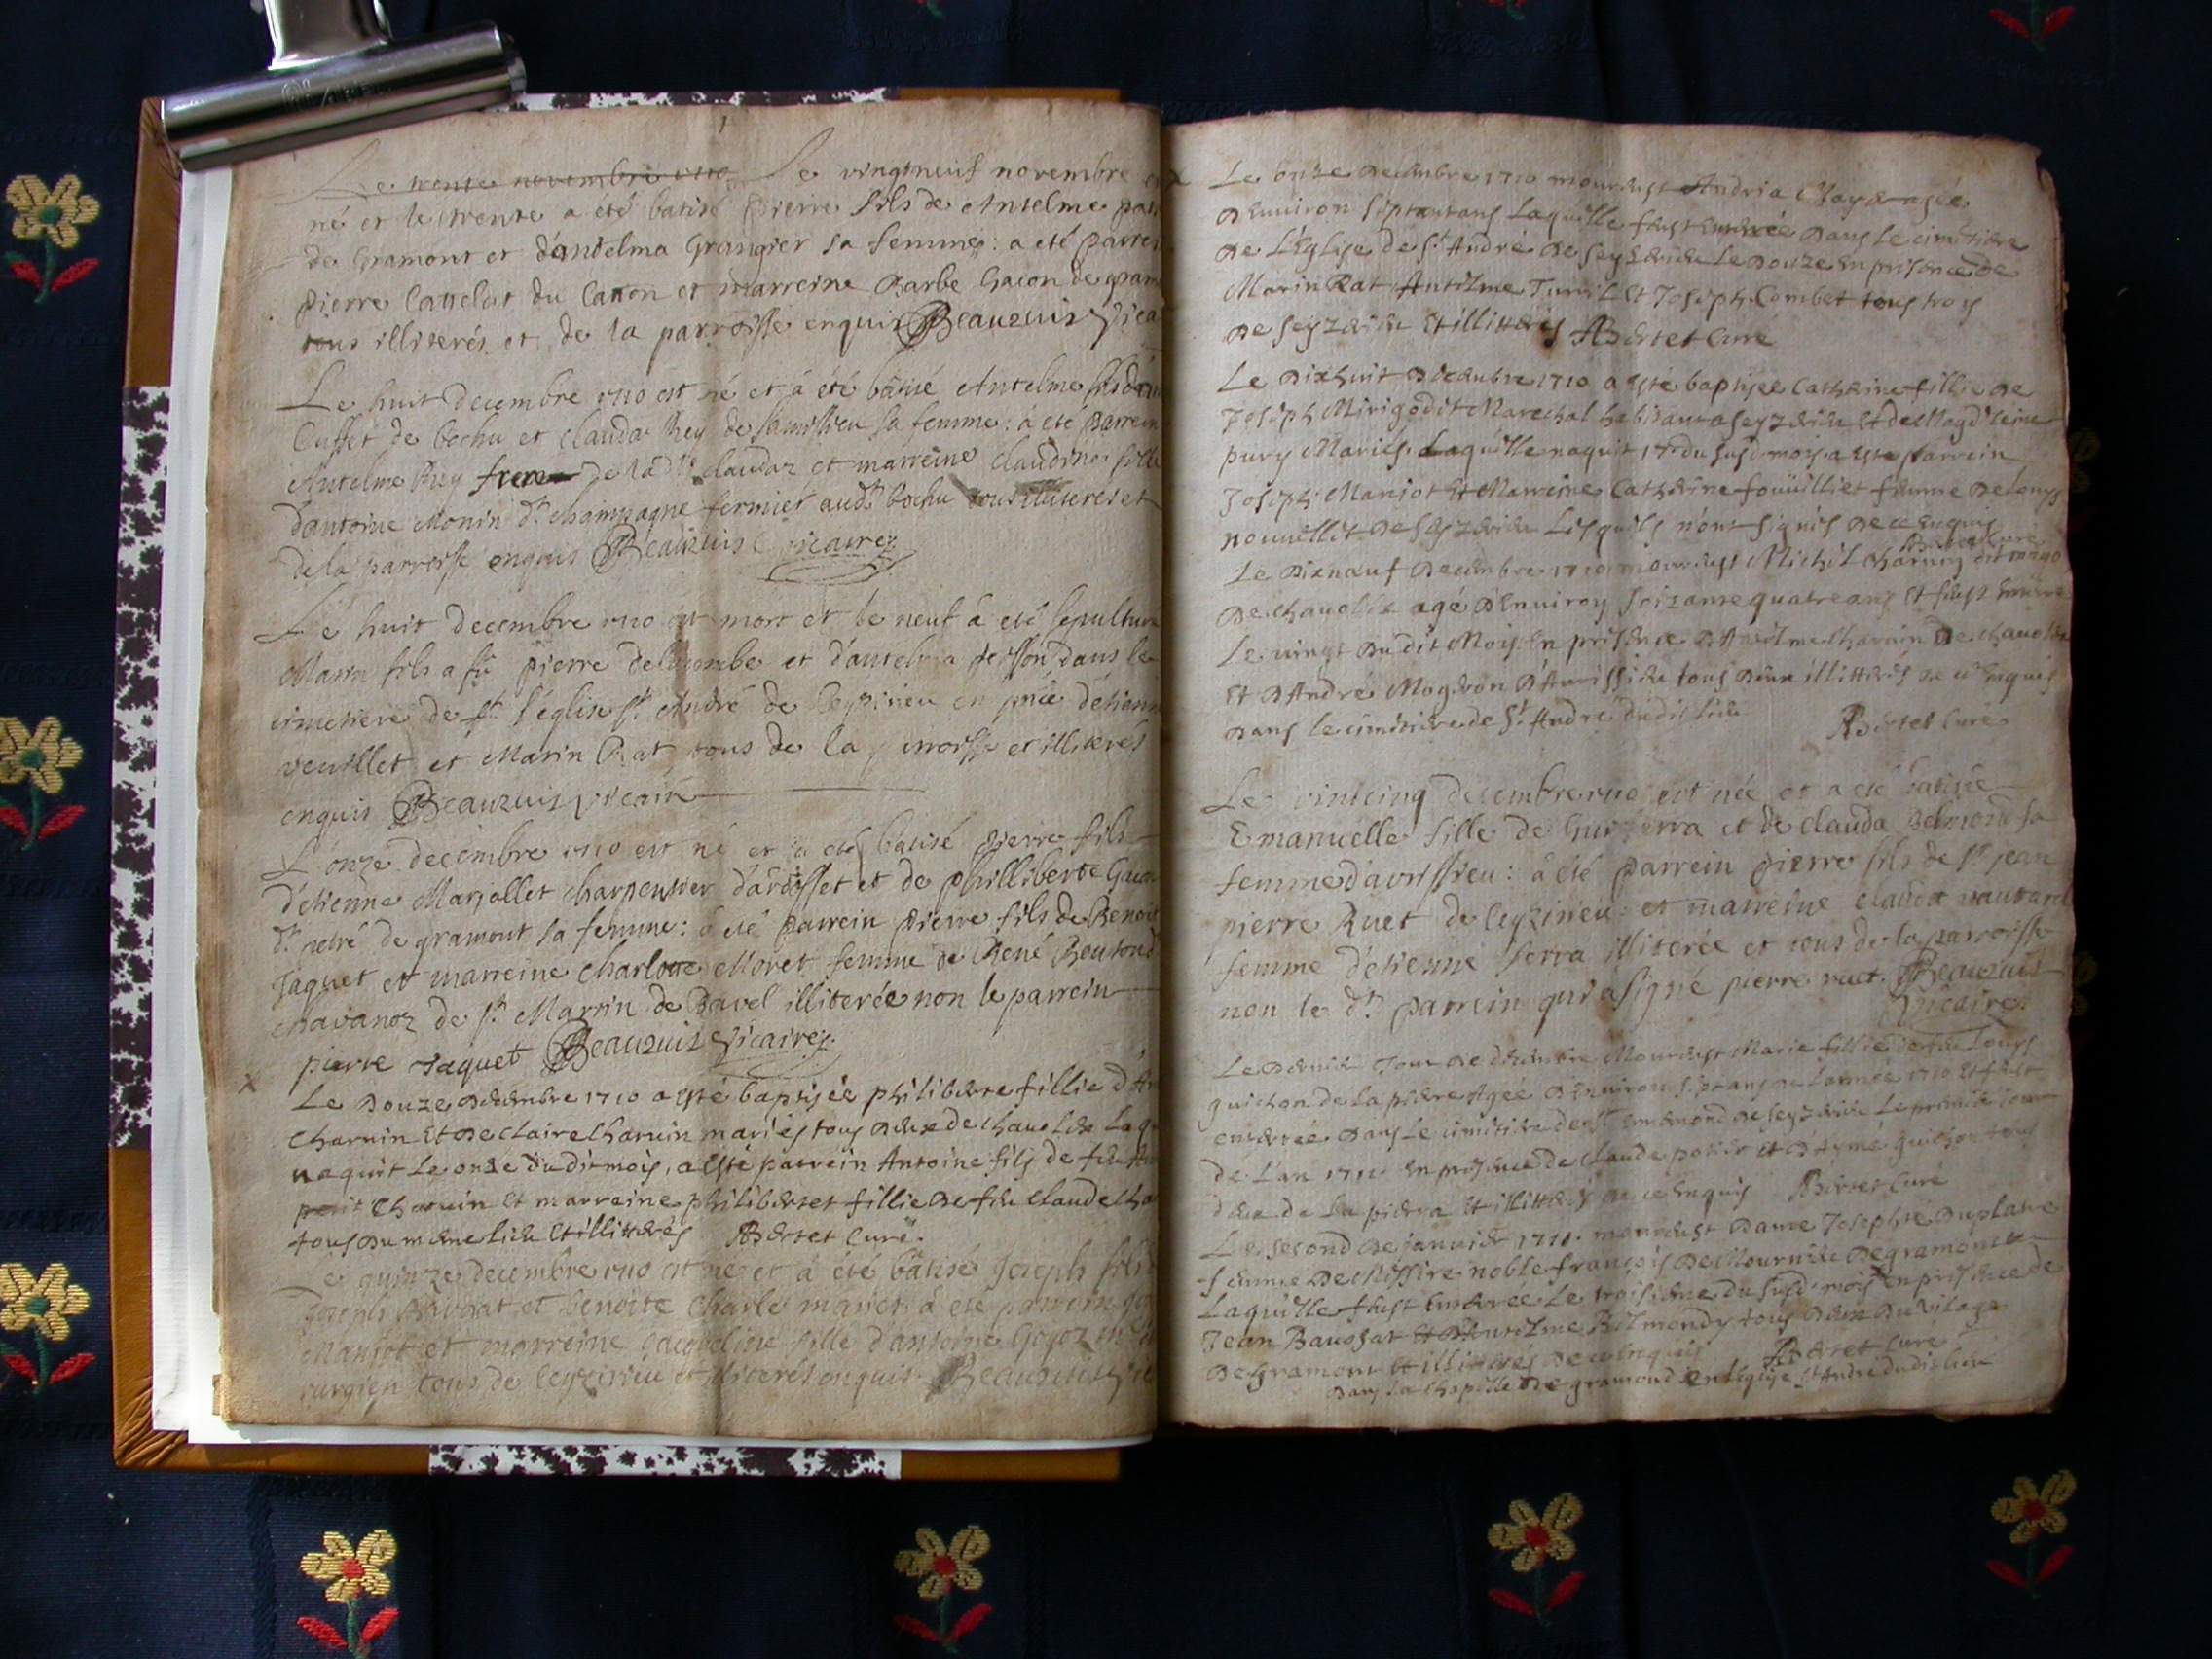 Le trente novembre 1710 Le vingtneuf novembre
né et le trente a été batisé pierre fils de Antelme
de gramont et d'antelma grangier sa femme : a eté parrei
pierre Cattelat du Catton et marreine Barbe Gacon de gram
tous illiterés et de la parroisse enquis Beauzuis vica
Le huit decembre 1710 est né et à été bâtisé Antelme fils
Cuffet de bochu et clauda Rey de sa femme : a eté parrein
Antelme Rey frere de la dte claudaz et marreine claudine fille
d'antoine Monin dt champagne fermier audt bochu tous illiterés et
de la parroisse enquis Beauzuis vicaire
Le huit decembre 1710 est mort et le neuf à eté sepulturé
Marin fils a fû pierre delacombe et d'antelma dans le
cimetiere de l'église st André de en pñce d'étienn
veuillet et Marin Rat tous de la parroisse et illiterés
enquis Beauzuis vicaire
L'onze decembre 1710 est né et a été batisé pierre fils
d'etienne Marjollet charpentier d'ardosset et de philliberte Gacon
dt de gramont sa femme : a eté parrein pierre fils de Benoit
Jaquet et marreine charlotte Moret femme de René
chavanoz de st Martin de Bavel illiterée non le parrein
pierre Jaquet Beauzuis vicaire
Le douze decembre 1710 a esté baptisée philiberte fillie d'An
Charuin et de Claire Charuin mariés tous deux de chauoley Laqu
naquit le onze dudit mois, a esté parrein Antoine fils de feu
petit Charuin et marraine philiberte fillie de feu Claude Cha
tous du mesme lieu et illitterés Bertet Curé.
Le quinze decembre 1710 est né et à été bâtisé Joseph fils d
joseph et benoite charle mariés à eté parrein
Manjot et marreine jacqueline fille d'antoine Goyot
rurgien tous de ceyzirieu et illiterés enquis Beauzuis vic
Le onze decembre 1710 mourust Andria agée
d'enuiron septante ans laquelle fust enterrée dans le cimitiere
de l'Église de St André de Seyzerieu le douze en presence de
Marin Rat Antelme et Joseph Combet tous trois
de Seyzerieu et illitterés Bertet Curé
Le dixhuit decembre 1710 a esté baptisée Catherine fillie de
Joseph dit Marechal habitant a Seyzerieu et de Magdeleine
pury Mariés. Laquelle naquit 17e du susd mois a esté parrein
Joseph Manjot et Marreine Catherine foüilliet femme de Louys
nouuellet de Seyzerieu Lesquels n'ont signés de ce enquis
Bertet Curé
Le dixneuf decembre 1710 mourust Michel Charuin dit
de chauolley agé d'enuiron soizante quatre ans et fust enterré
Le vingt dudit Mois en presence d'Antelme Charuin de chauoley
Et d'André Mogeron d'Aurissieu tous deux illitterés de ce enquis
dans le cimitiere de St André dudit lieu Bertet Curé
Le vintcinq decembre 1710 est née et a été batisée
Emanuelle fille de Guy serra et de clauda Belmond sa
femme d'avrissieu : à eté parrein pierre fils de st jean
pierre Ruet de ceyzirieu : et marreine claudaz
femme d'etienne serra illiterée et tous de la parroisse
non le dt parrein qui a signé pierre ruet. Beauzuis
vicaire
Le dernier Jour de decembre Mourust Marie fillie de feu Louys
guichon de la pierre Agée d'enuiron sept ans de l'année 1710 et fust
enterrée dans le cimitiere de St de Seyzerieu le premier Jour
de l'an 1711 en presence de Claude potier et d'Aymé guichon tous
deux de la pierre et illitterés de ce enquis Bertet Curé
Le second de januier 1711. mourust Dame Josephte Duplatre
femme de Messire noble françois de Mournieu de gramont
Laquelle fust enterree le troisieme du susd mois en presence de
Jean Baugiat et d'Antelme Belmond tous deux du vilage
de gramont et illitterés de ce enquis Bertet Curé
dans la chapelle de gramond en leglise St André dudit lieu